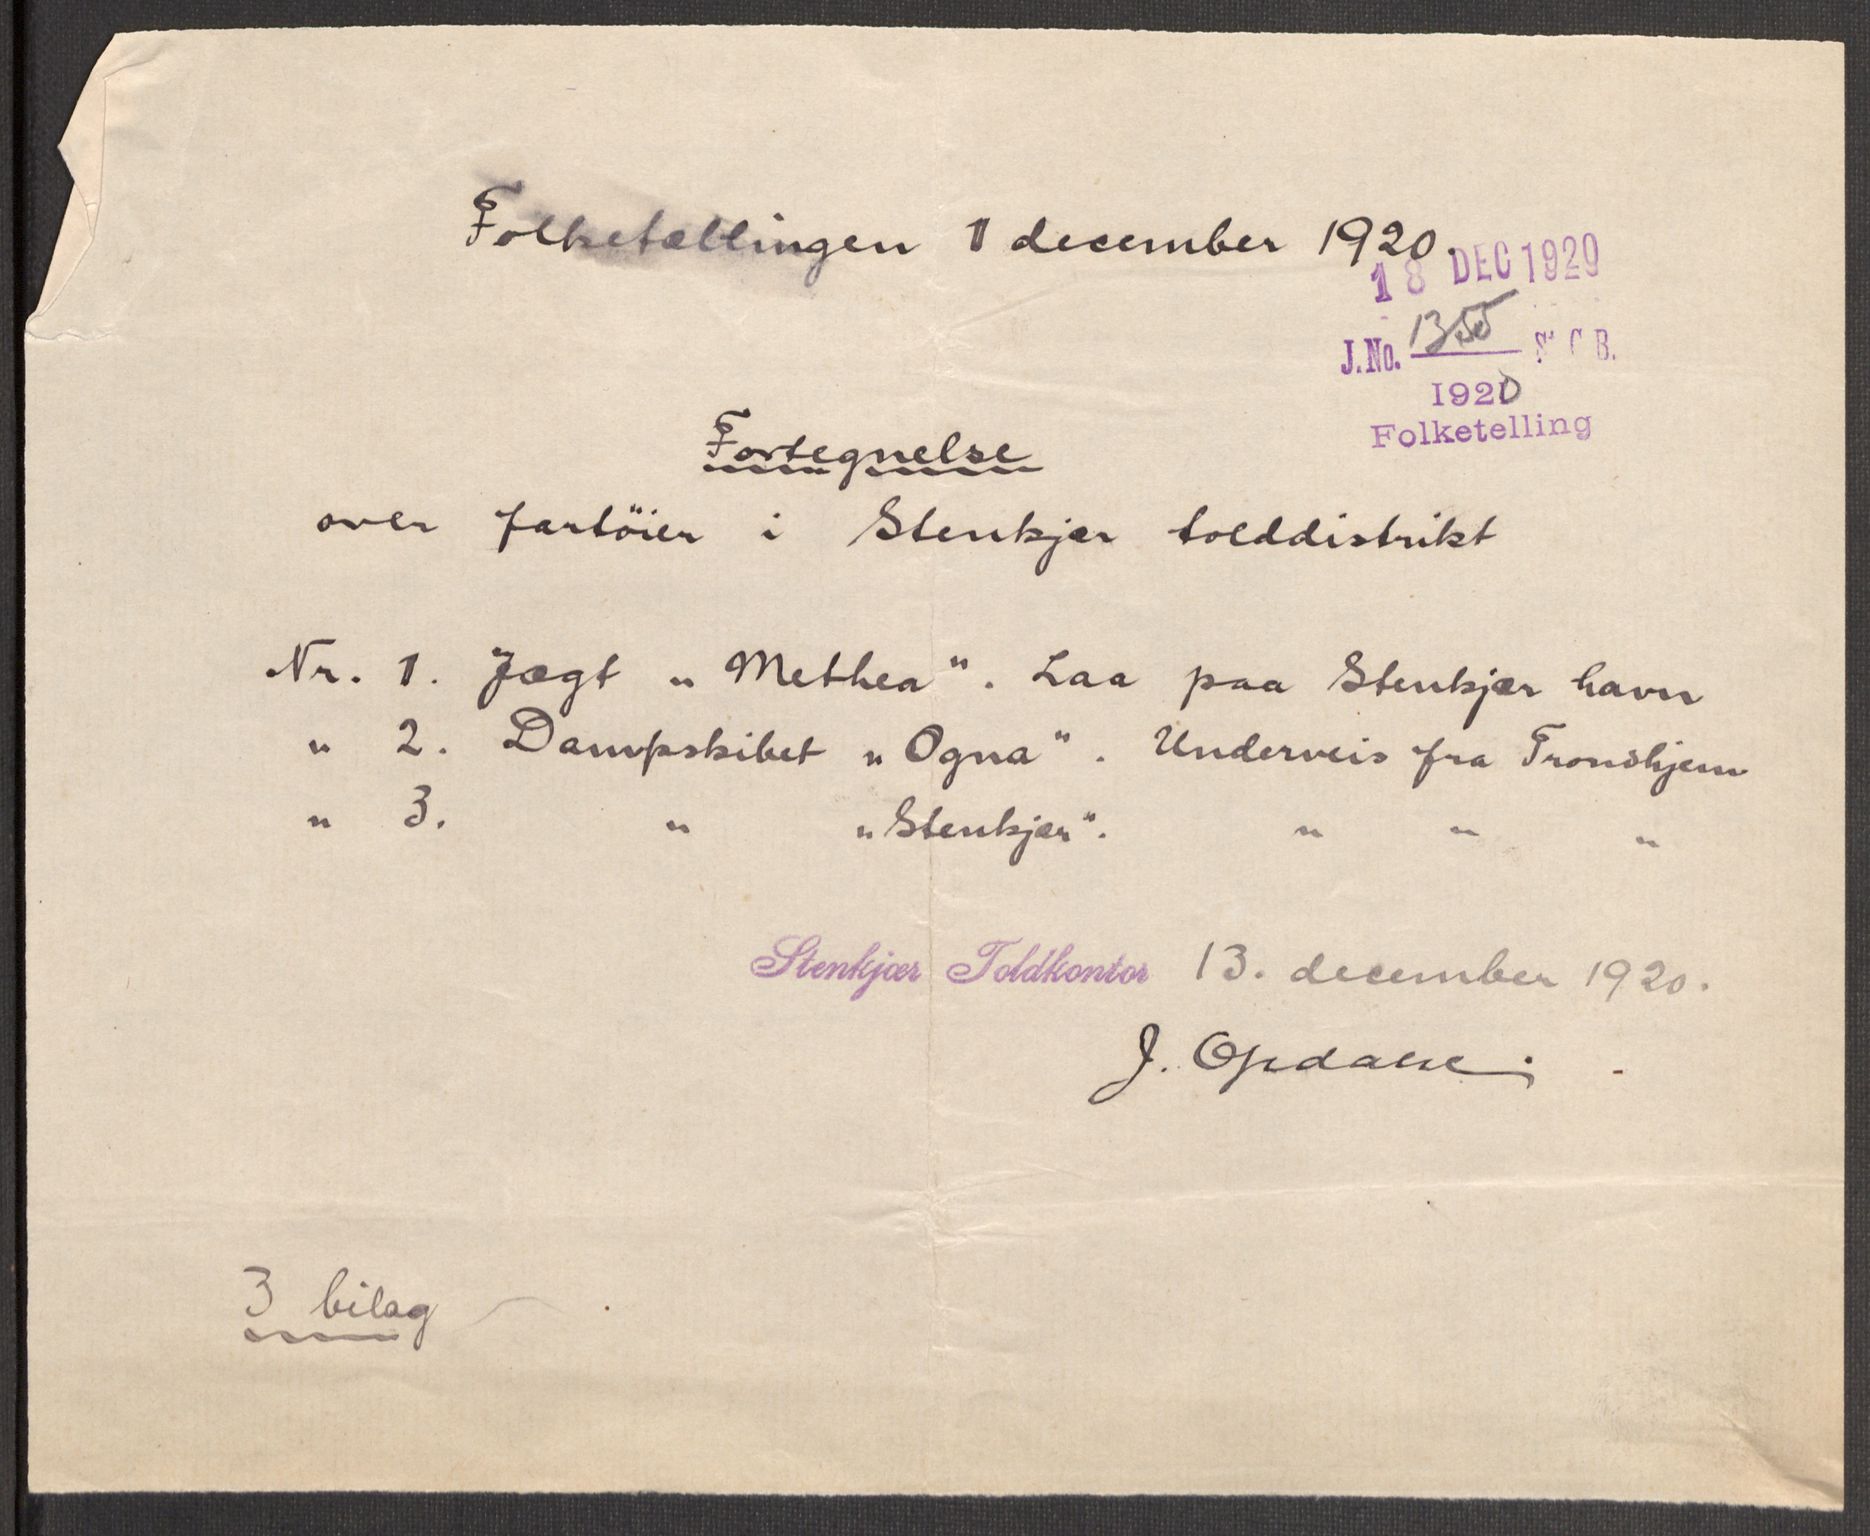 Folketællingen 1 december 1920.
18 DEC 1920
J.No. 1355 S. C B.
1920
Folketelling
Fortegnelse
over fartöier i Stenkjær tolddistrikt
Nr. 1. Jægt „Methea". Laa paa Stenkjær havn
„ 2. Dampskibet „Ogna". Underveis fra Trondhjem
„ 3. „ „Stenkjær". „ „ „
Stenkjær Toldkontor 13. december 1920.
J. Opdahl
3 bilag